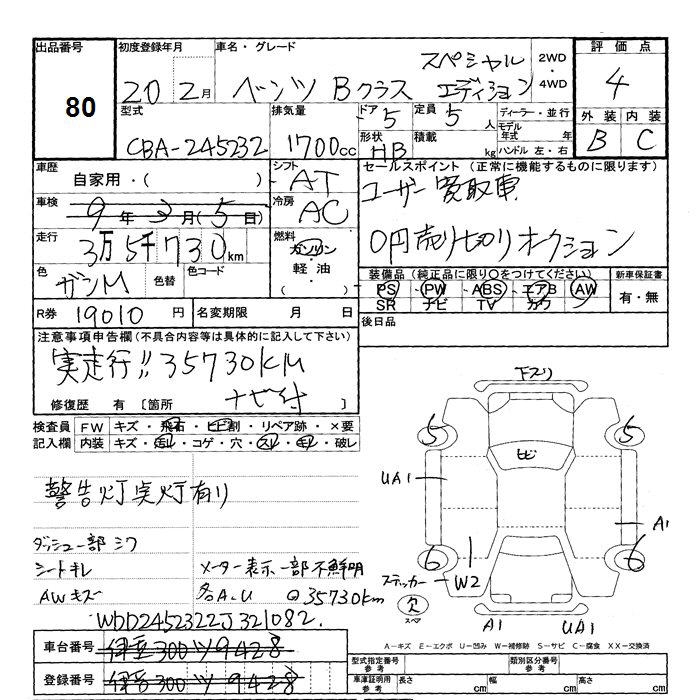 出品番号 初度登録年月 車名・グレード 評価点
80 20 2月 ベンツ Bクラス スペシャル エディション 2WD・4WD 4
型式 排気量 ドア 5 定員 5人 ディーラー・並行 外装 内装
CBA-245232 1700cc 形状 HB 積載 kg モデル年式 年 ハンドル 左・右 B C
車歴 自家用・( ) シフト AT セールスポイント(正常に機能するものに限ります)
車検 9年3月(5日) 冷房 AC ユーザー買取車
走行 3万5千730km 燃料 ガソリン・軽油・( ) 0円売り切りオークション
色 ガンM 色替 色コード 装備品(純正品に限り○をつけてください) 新車保証書
PS PW ABS エアB AW 有・無
SR ナビ TV カワ
R券 19010円 名変期限 月 日 後日品
注意事項申告欄(不具合内容等は具体的に記入して下さい)
実走行!! 35730KM
ナビ付
修復歴 有 [箇所 ]
検査員 FW キズ・飛石・ヒビ割・リペア跡・×要
記入欄 内装 キズ・汚れ・コゲ・穴・スレ・モレ・破レ
下スリ
5 5
ヒビ
UA1
A1
警告灯実灯有り
ダッシュ一部シワ
シートキレ メーター表示一部不鮮明
AWキズ 各A.U 35730km
6 6
ステッカー W2
欠
スペア
A1 UA1
WDD2452322J321082.
A-キズ E-エクボ U-凹み W-補修跡 S-サビ C-腐食 XX-交換済
車台番号 伊豆300ツ9428
登録番号 伊豆300ツ9428
型式指定番号 参考 類別区分番号 参考
車庫証明用 参考 長さ cm 幅 cm 高さ cm